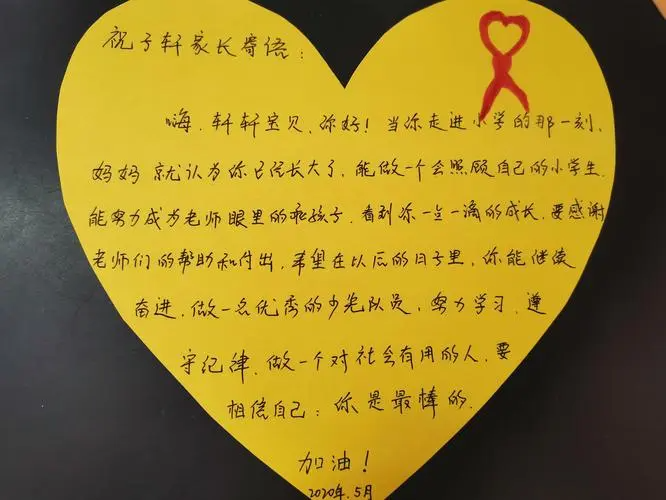 祝子轩家长寄语：
嗨，轩轩宝贝，你好！当你走进小学的那一刻，
妈妈就认为你已经长大了，能做一个会照顾自己的小学生，
能努力成为老师眼里的乖孩子，看到你一点一滴的成长，要感谢
老师们的帮助和付出，希望在以后的日子里，你能继续
奋进，做一名优秀的少先队员，努力学习，遵
守纪律，做一个对社会有用的人，要
相信自己：你是最棒的，
加油！
2020年.5月